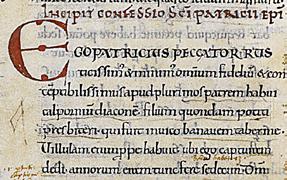 INCIPIT CONFESSIO SCI PATRICII EPI
EGO PATRICIUS PECCATOR RUS
ticissimus & minimus omnium fidelium & con
temptibilissimus apud plurimos patrem habui
calpornium diaconem filium quondam potiti
presbiteri qui fuit vico bannavem taberniae
Villulam enim prope habuit ubi ego capturam
dedi annorum eram tunc fere sedecim Dm